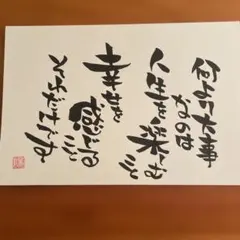 何より大事
なのは
人生を楽しむ
こと
幸せを
感じる
こと
それだけです